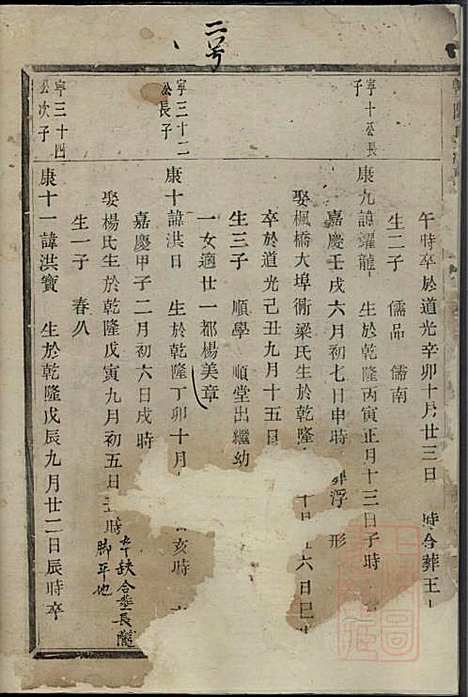 二号
午時卒於道光辛卯十月廿三日 時合葬王
生二子 儒品 儒南
寧十公長子
康九諱躍龍 生於乾隆丙寅正月十三日子時
嘉慶壬戌六月初七日申時 浮形
娶楓橋大埠衕梁氏生於乾隆 十 月 六日巳
卒於道光己丑九月十五日
生三子 順學 順堂出繼幼
一女適廿一都楊美章
寧三十二公長子
康十諱洪日 生於乾隆丁卯十月 亥時
嘉慶甲子二月初六日戌時
娶楊氏生於乾隆戊寅九月初五日 時
卒缺合塟長隨脚平地
生一子 春八
寧三十四公次子
康十一諱洪寶 生於乾隆戊辰九月廿二日辰時卒